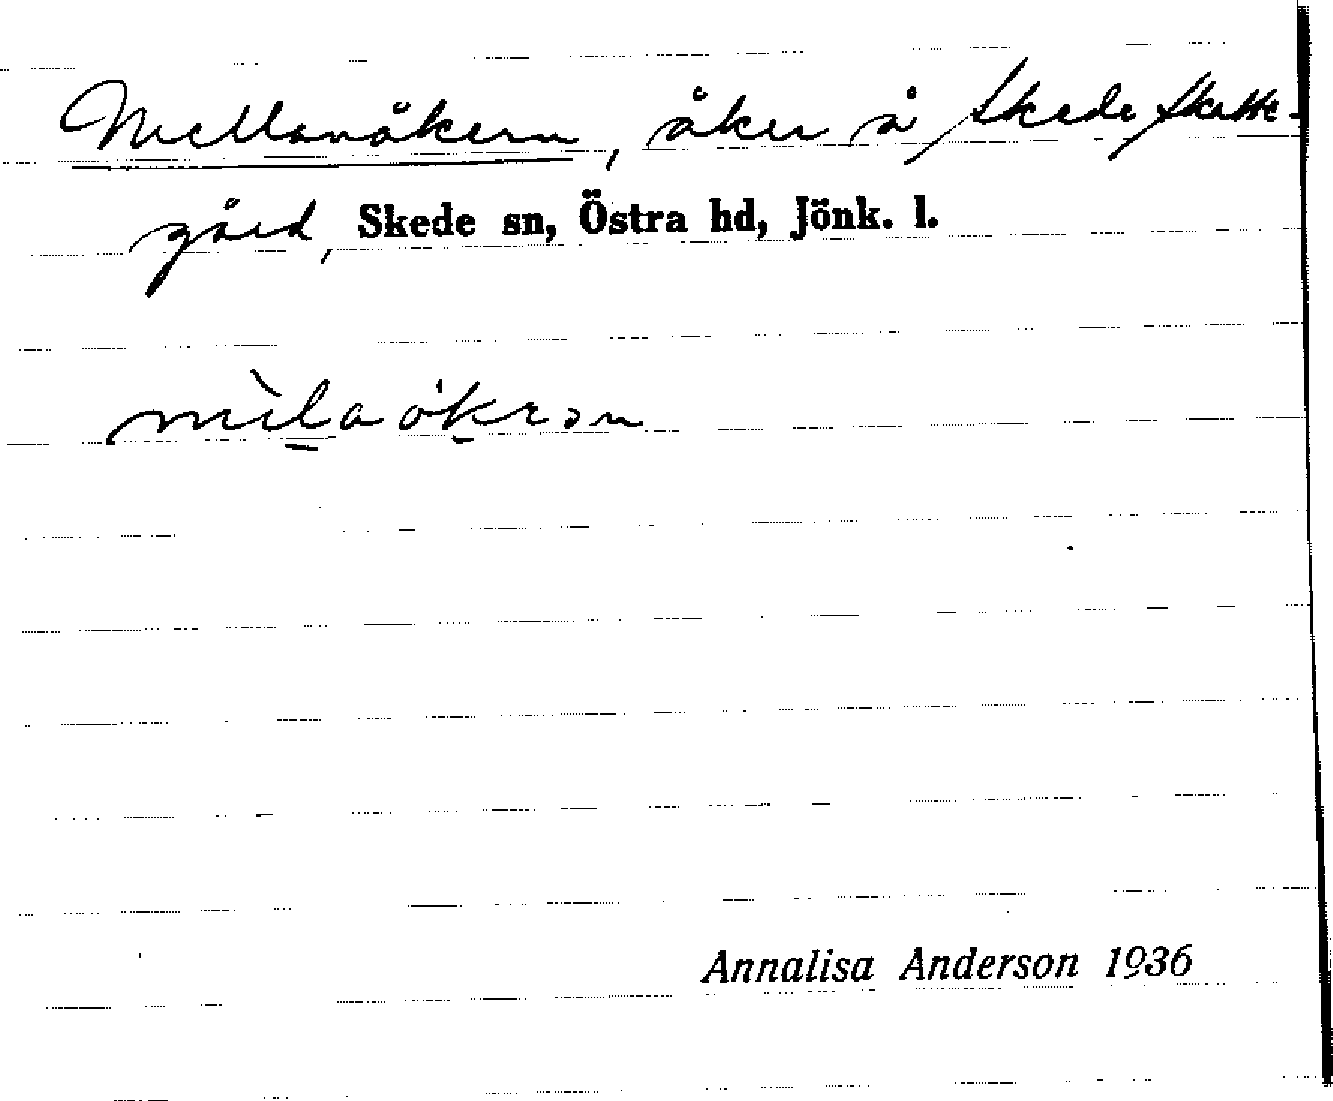 Mellanåkern, åker å Skede Skatte-
gård, Skede sn, Östra hd, Jönk. l.
mèlaókrən
Annalisa Anderson 1936